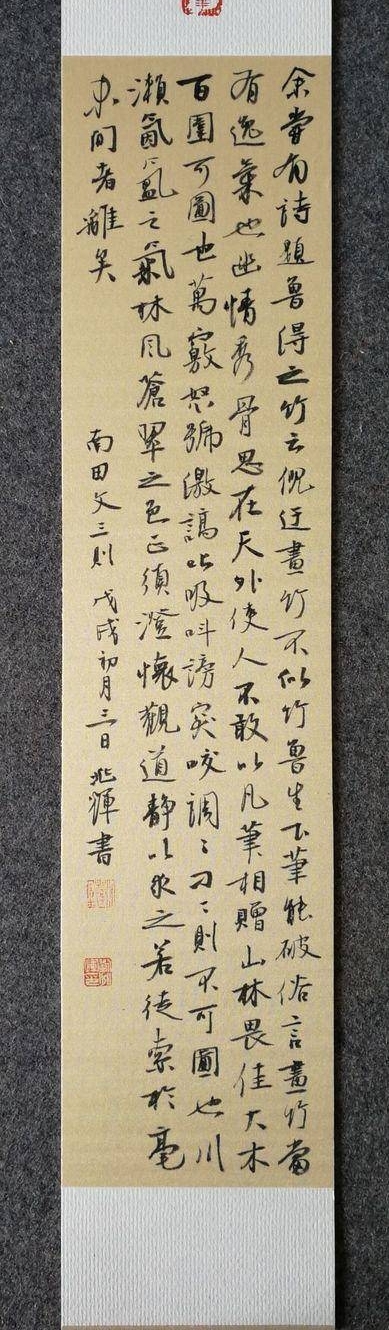 余嘗有詩題魯得之竹云倪迂畫竹不似竹魯生下筆能破俗言畫竹當
有逸氣也幽情秀骨思在天外使人不敢以凡筆相贈山林畏佳大木
百圍可圖也萬竅怒號激謞叱吸叫譹宎咬調〻刁〻則不可圖也川
瀨氤氳之氣林風蒼翠之色正須澄懷觀道靜以求之若徒索於毫
末間者離矣
南田文三則 戊戌初月三日 兆輝書